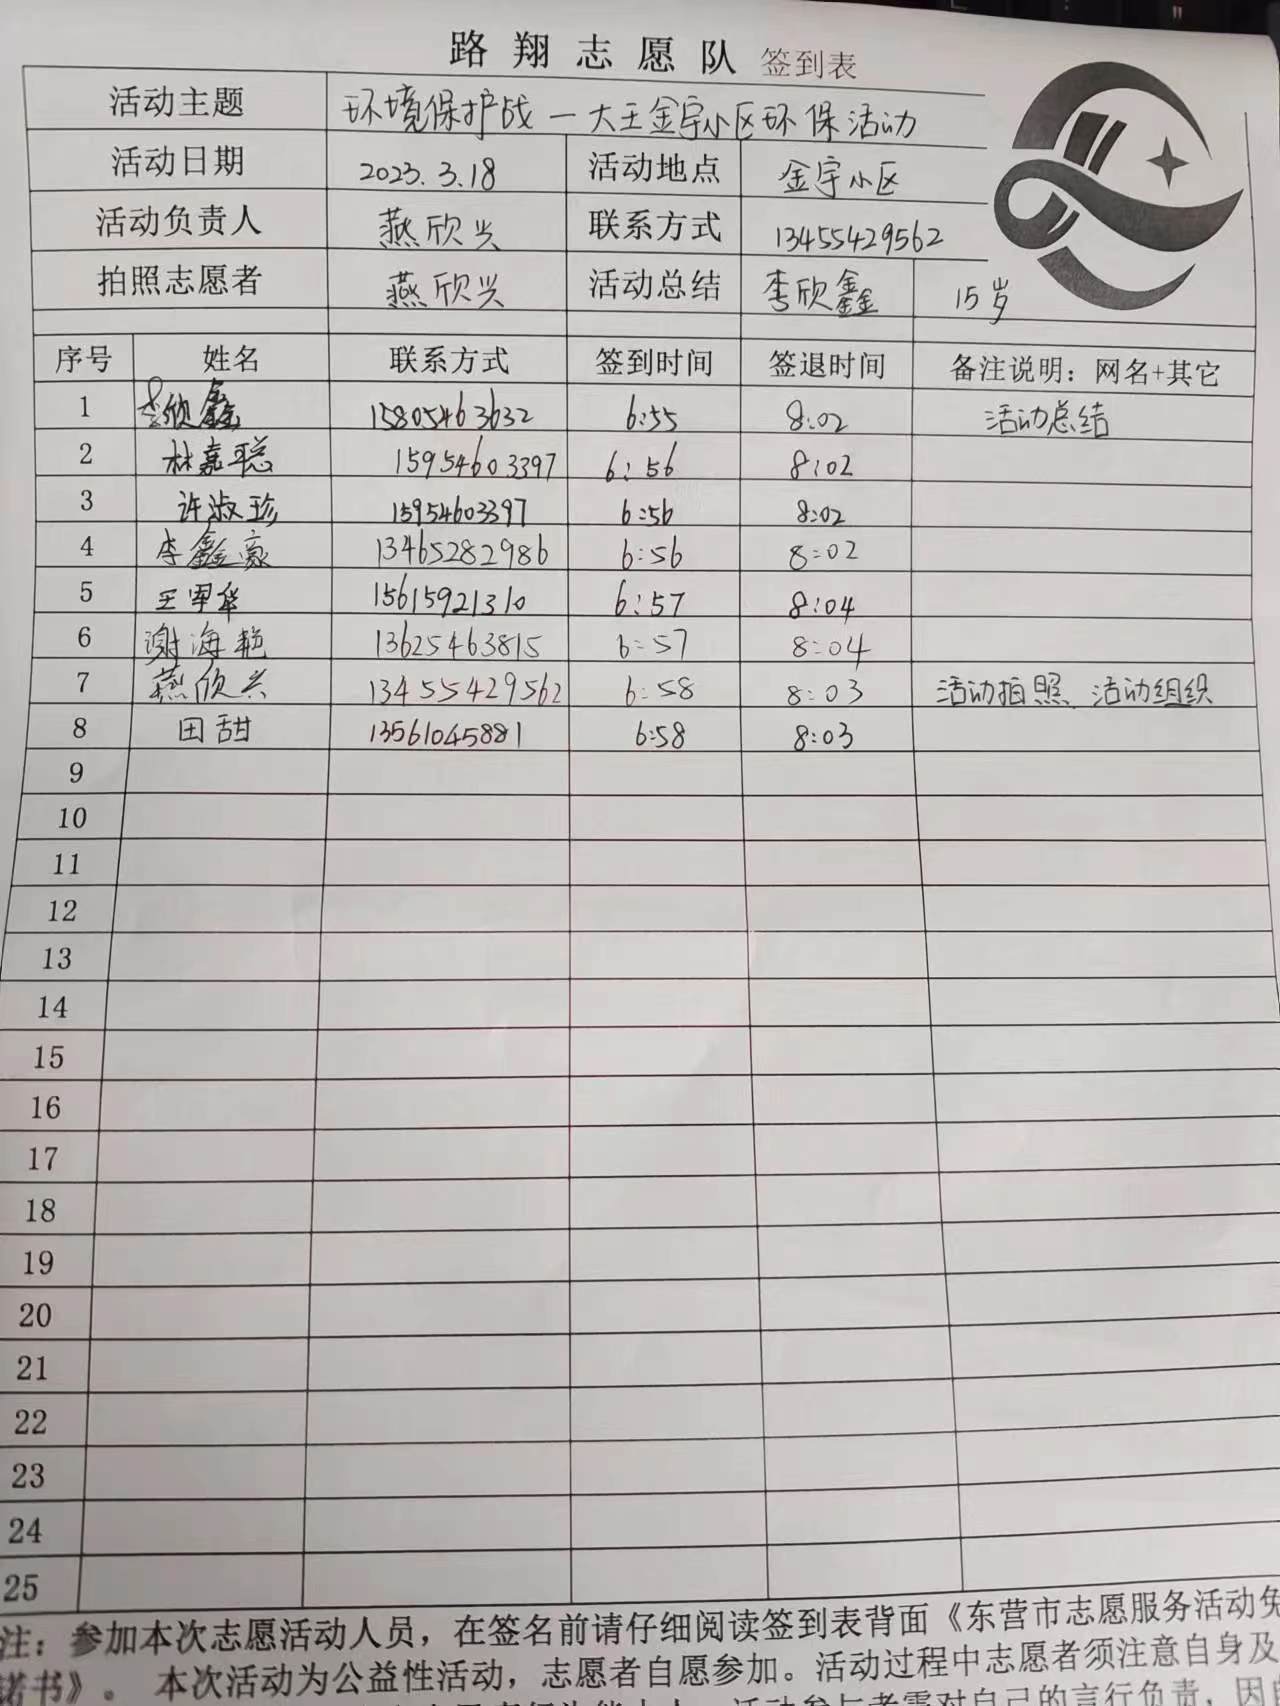 路翔志愿队 签到表
活动主题 环境保护战—大王金宇小区环保活动
活动日期 2023.3.18 活动地点 金宇小区
活动负责人 燕欣兴 联系方式 13455429562
拍照志愿者 燕欣兴 活动总结 李欣鑫 15岁
序号 姓名 联系方式 签到时间 签退时间 备注说明：网名+其它
1 李欣鑫 15805463632 6:55 8:02 活动总结
2 林嘉聪 15954603397 6:56 8:02
3 许淑珍 15954603397 6:56 8:02
4 李鑫豪 13465282986 6:56 8:02
5 王军华 15615921310 6:57 8:04
6 谢海艳 13625463815 6:57 8:04
7 燕欣兴 13455429562 6:58 8:03 活动拍照、活动组织
8 田甜 13561045881 6:58 8:03
9
10
11
12
13
14
15
16
17
18
19
20
21
22
23
24
25
注：参加本次志愿活动人员，在签名前请仔细阅读签到表背面《东营市志愿服务活动免
诺书》。本次活动为公益性活动，志愿者自愿参加。活动过程中志愿者须注意自身及
活动参与者需对自己的言行负责，因